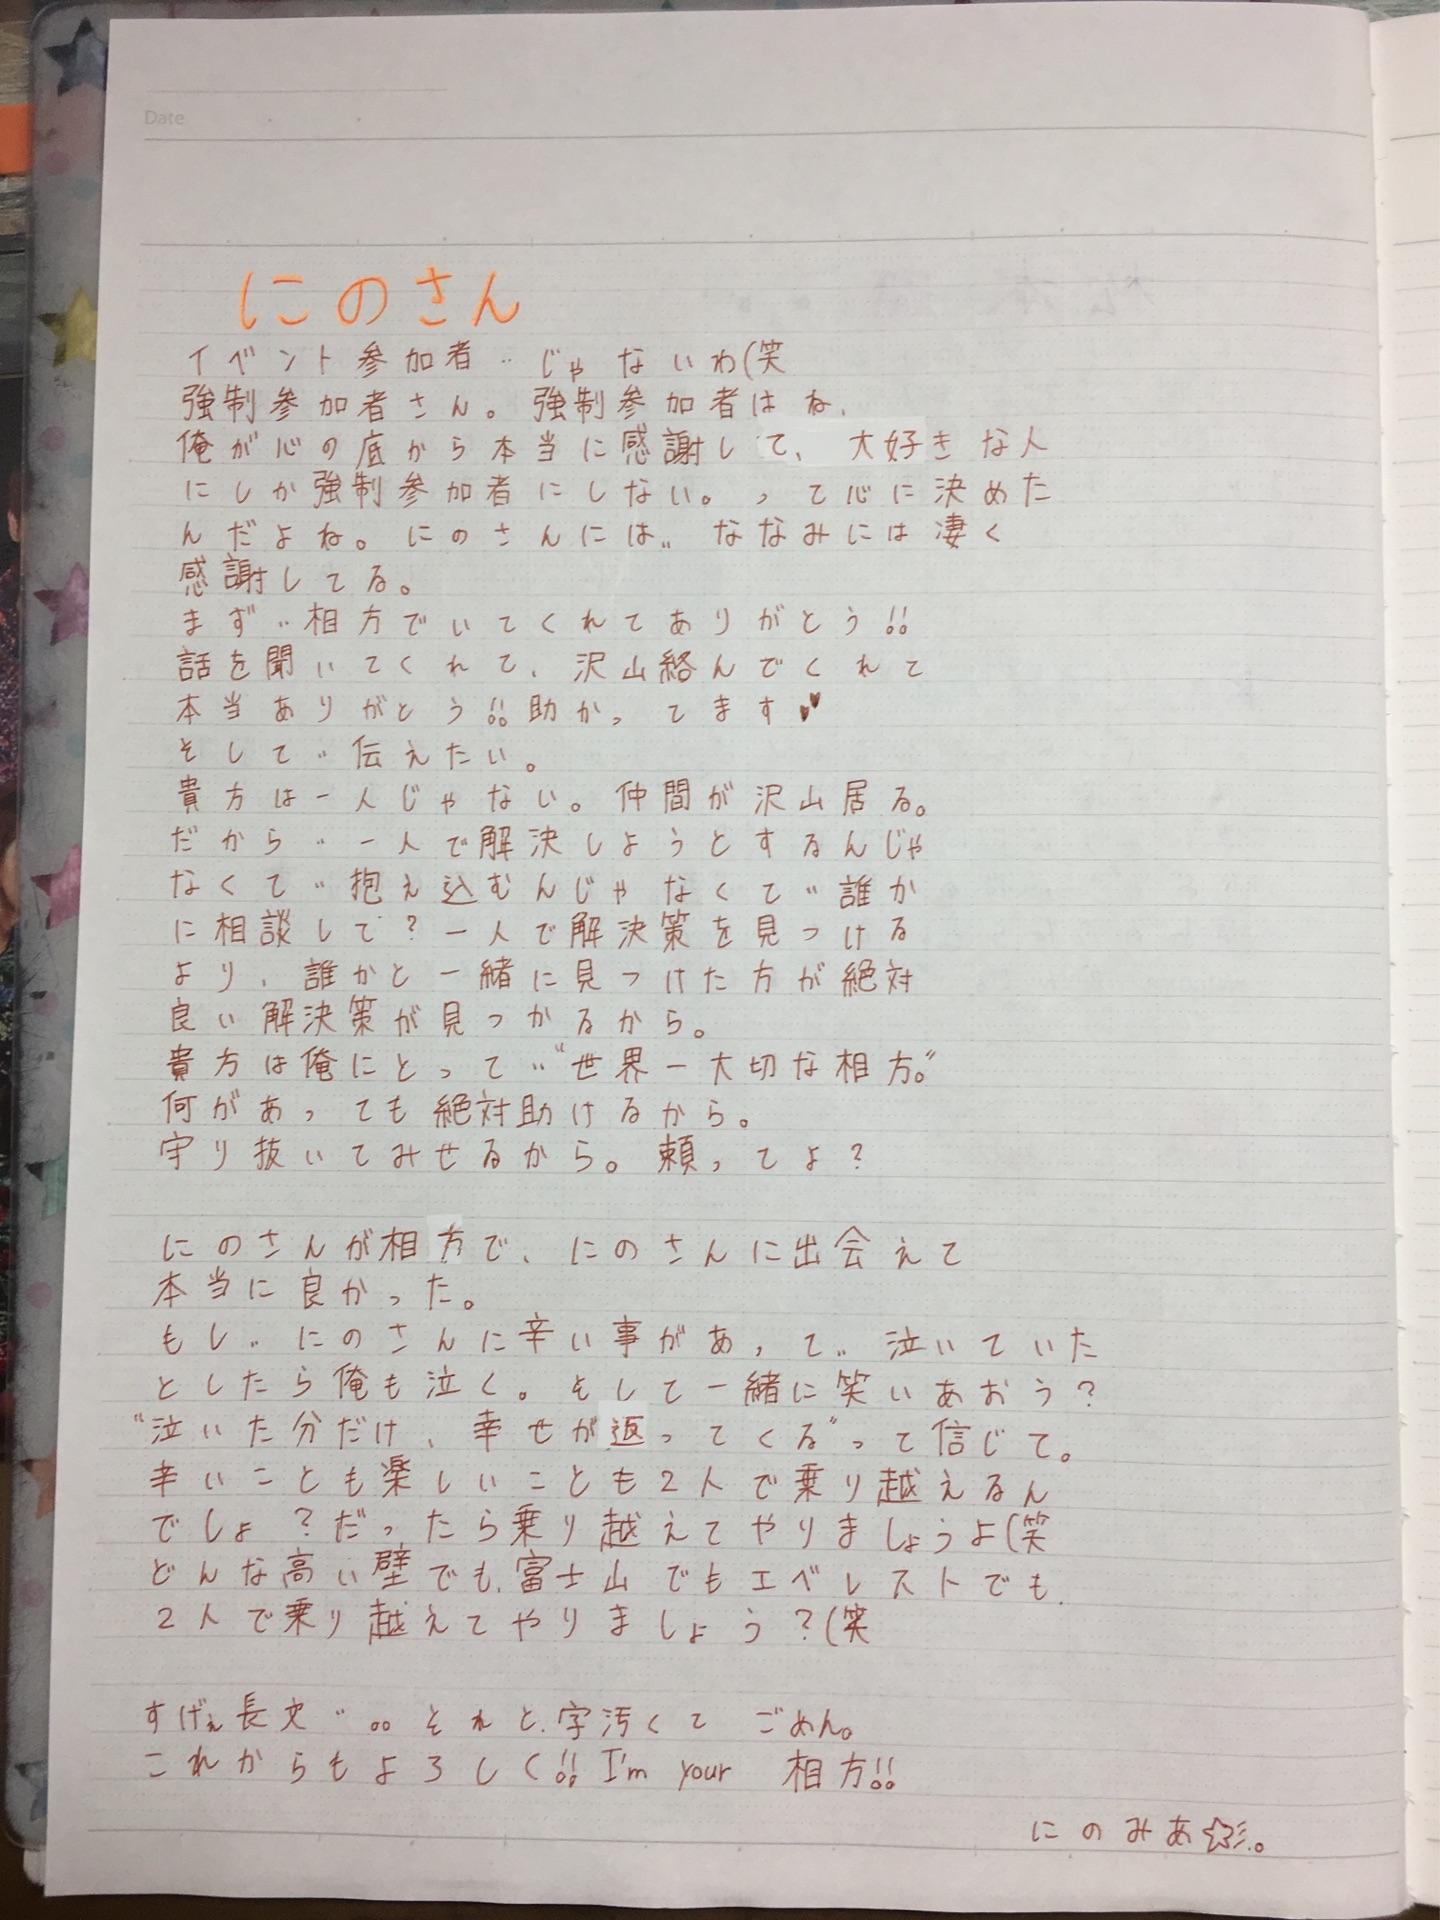 Date
にのさん
イベント参加者‥じゃないわ(笑
強制参加者さん。強制参加者はね、
俺が心の底から本当に感謝して、大好きな人
にしか強制参加者にしない。って心に決めた
んだよね。にのさんには‥ななみには凄く
感謝してる。
まず‥相方でいてくれてありがとう!!
話を聞いてくれて、沢山絡んでくれて
本当ありがとう!!助かってます💕
そして‥伝えたい。
貴方は一人じゃない。仲間が沢山居る。
だから‥一人で解決しようとするんじゃ
なくて‥抱え込むんじゃなくて‥誰か
に相談して?一人で解決策を見つける
より、誰かと一緒に見つけた方が絶対
良い解決策が見つかるから。
貴方は俺にとって‥“世界一大切な相方。”
何があっても絶対助けるから。
守り抜いてみせるから。頼ってよ?
にのさんが相方で、にのさんに出会えて
本当に良かった。
もし‥にのさんに辛い事があって‥泣いていた
としたら俺も泣く。そして一緒に笑いあおう?
“泣いた分だけ、幸せが返ってくる”って信じて。
辛いことも楽しいことも2人で乗り越えるん
でしょ?だったら乗り越えてやりましょうよ(笑
どんな高い壁でも、富士山でもエベレストでも、
2人で乗り越えてやりましょう?(笑
すげぇ長文‥。。それと、字汚くてごめん。
これからもよろしく!!I'm your 相方!!
にのみあ☆彡。